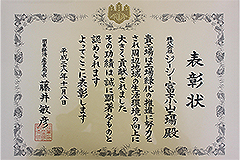 表彰状
株式会社ジーシー富士小山工場殿
貴工場は工場緑化の推進に努力を
され周辺地域の生活環境の向上に
大きく貢献されました
その功績は誠に顕著なものと
認められます
よってここに表彰します
平成十六年十一月八日
関東経済産業局長
藤井敏彦